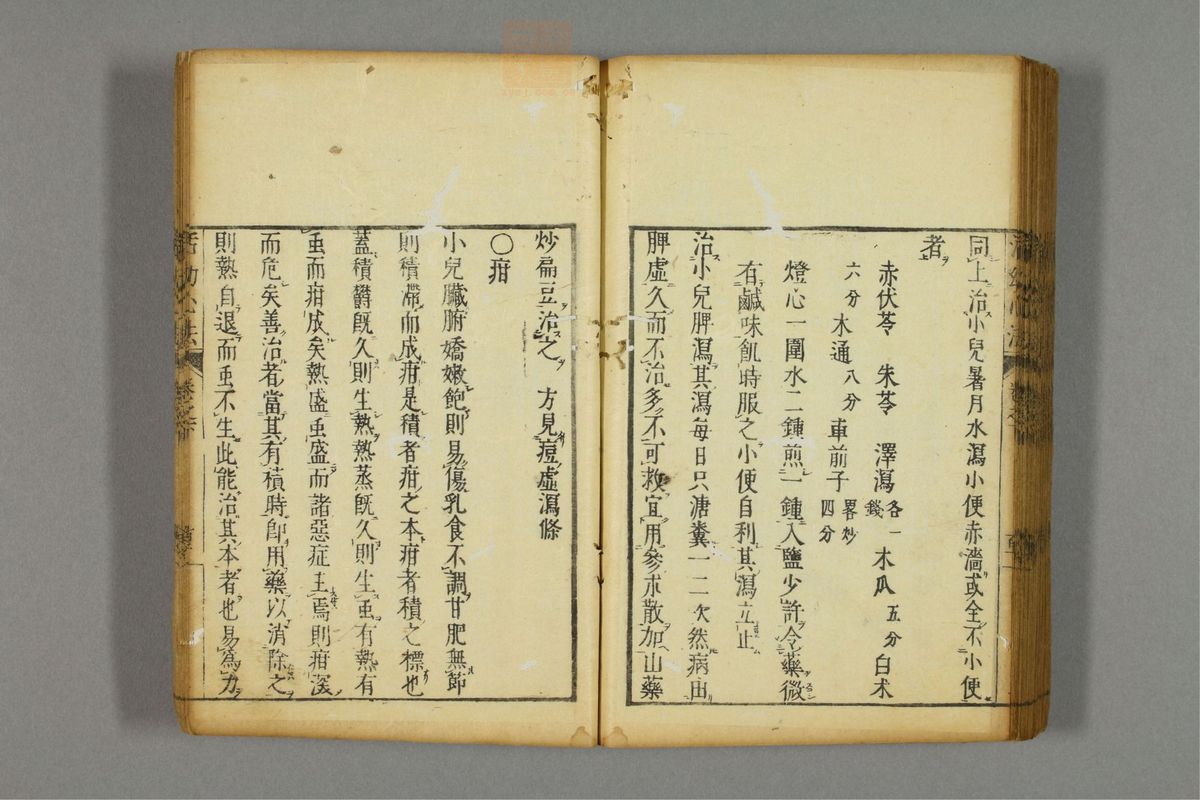 同上治小兒暑月水瀉小便赤濇或全不小便
者
赤伏苓　朱苓　澤瀉各一錢　木瓜五分　白朮
六分　木通八分　車前子畧炒四分
燈心一圍水二鍾煎一鍾入鹽少許令藥微
有鹹味飢時服之小便自利其瀉立止
治小兒脾瀉其瀉每日只溏糞一二次然病由
脾虛久而不治多不可救宜用參朮散加山藥
炒扁豆治之　方見痘虛瀉條
〇疳
小兒臟腑嬌嫩飽則易傷乳食不調甘肥無節
則積滯而成疳是積者疳之本疳者積之標也
蓋積欝既久則生熱熱蒸既久則生䖝有熱有
䖝而疳成矣熱盛䖝盛而諸惡症主焉則疳深
而危矣善治者當其有積時即用藥以消除之
則熱自退而䖝不生此能治其本者也易為力
活幼心法　卷之